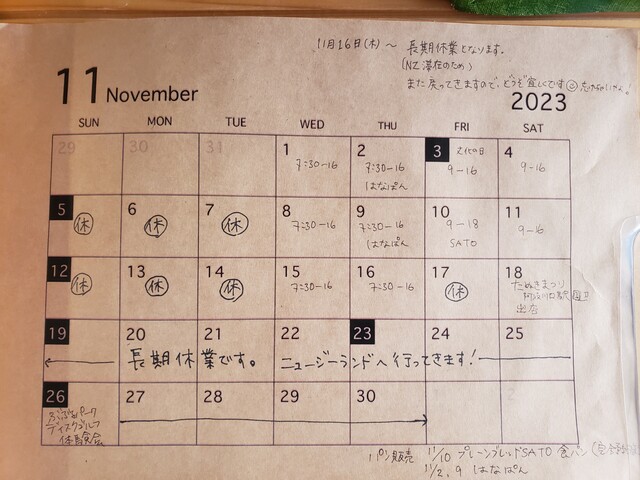 11月16日(木)～ 長期休業となります。
(NZ滞在のため)
また戻ってきますので、どうぞ宜しくです
11 November
2023
SUN MON TUE WED THU FRI SAT
29 30 31 1 2 3 文化の日 4
7:30-16 7:30-16 9-16 9-16
はなぱん
5 6 7 8 9 10 11
休 休 休 7:30-16 7:30-16 9-18 9-16
はなぱん SATO
12 13 14 15 16 17 18
休 休 休 7:30-16 7:30-16 休 たぬきまつり
出店
19 20 21 22 23 24 25
長期休業です。 ニュージーランドへ行ってきます!
26 27 28 29 30 1 2
パーク
ディスクゴルフ
体験会
パン販売 11/10 プレーンブレッドSATO 食パン
11/2,9 はなぱん